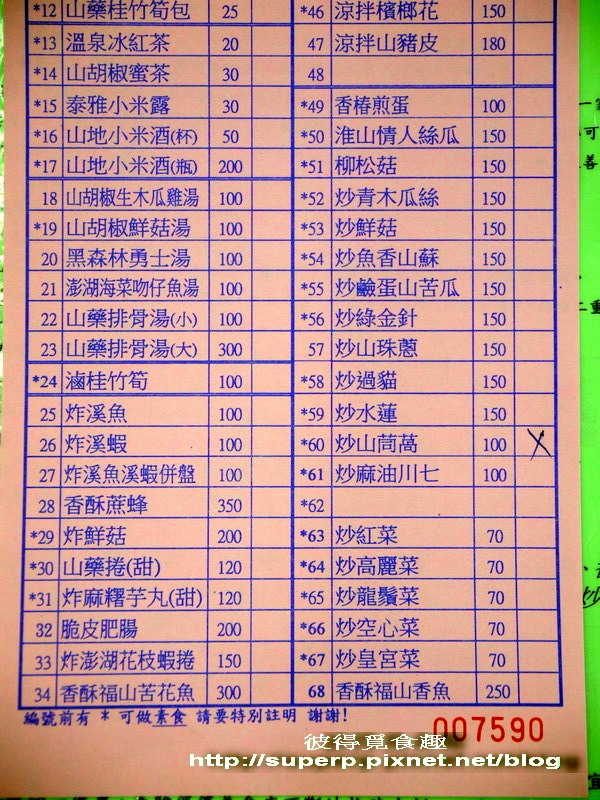 *12 山藥桂竹筍包 25
*13 溫泉冰紅茶 20
*14 山胡椒蜜茶 30
*15 泰雅小米露 30
*16 山地小米酒(杯) 50
*17 山地小米酒(瓶) 200
18 山胡椒生木瓜雞湯 100
*19 山胡椒鮮菇湯 100
20 黑森林勇士湯 100
21 澎湖海菜吻仔魚湯 100
22 山藥排骨湯(小) 100
23 山藥排骨湯(大) 300
*24 滷桂竹筍 100
25 炸溪魚 100
26 炸溪蝦 100
27 炸溪魚溪蝦併盤 100
28 香酥蔗蜂 350
*29 炸鮮菇 200
*30 山藥捲(甜) 120
*31 炸麻糬芋丸(甜) 120
32 脆皮肥腸 200
33 炸澎湖花枝蝦捲 150
34 香酥福山苦花魚 300
*46 涼拌檳榔花 150
47 涼拌山豬皮 180
48
*49 香椿煎蛋 100
*50 淮山情人絲瓜 150
*51 柳松菇 150
*52 炒青木瓜絲 150
*53 炒鮮菇 150
*54 炒魚香山蘇 150
*55 炒鹼蛋山苦瓜 150
*56 炒綠金針 150
57 炒山珠蔥 150
*58 炒過貓 150
*59 炒水蓮 150
*60 炒山茼萵 100 X
*61 炒麻油川七 100
*62
*63 炒紅菜 70
*64 炒高麗菜 70
*65 炒龍鬚菜 70
*66 炒空心菜 70
*67 炒皇宮菜 70
68 香酥福山香魚 250
編號前有 * 可做素食 請要特別註明 謝謝!
007590
彼得覓食趣
http://superp.pixnet.net/blog